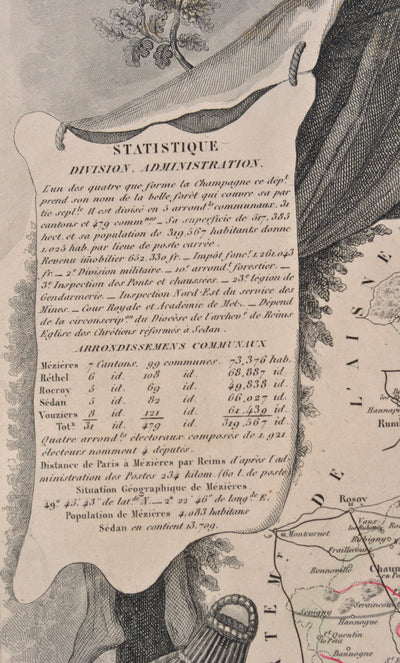 STATISTIQUE
DIVISION. ADMINISTRATION.
L'un des quatre que forme la Champagne ce dépt
prend son nom de la belle forêt qui couvre sa par
tie septle. Il est divisé en 5 arrondts communaux, 31
cantons et 479 commnes _ Sa superficie de 517,385
hect. et sa population de 319,567 habitants donne
1,025 hab. par lieue de poste carrée.
Revenu imobilier 652.330 fr. _ Impôt foncr 1,261,043
fr. _ 2e Division militaire. _ 10e arrondt forestier. _
3e Inspection des Ponts et chaussées. _ 23e légion de
Gendarmerie. _ Inspection Nord-Est du service des
Mines. _ Cour Royale et Académie de Metz. _ Dépend
de la circonscripon du Diocèse de l'archevc de Reims
Eglise des Chrétiens réformés à Sedan.
ARRONDISSEMENS COMMUNAUX
Mézières 7 Cantons. 99 communes. 73,376 hab.
Réthel 6 id. 108 id. 68,887 id.
Rocroy 5 id. 69 id. 49,838 id.
Sédan 5 id. 82 id. 66,027 id.
Vouziers 8 id. 121 id. 61,439 id.
Totx 31 id. 479 id. 319,567 id.
Quatre arrondts électoraux composés de 1,921
électeurs nomment 4 députés.
Distance de Paris à Mézières par Reims d'après l'ad
ministration des Postes 234 kilom. (60 l. de poste)
Situation Géographique de Mézières.
49o 45' 43" de latde N. _ 2o 22' 46" de longde E.
Population de Mézières 4,083 habitans
Sédan en contient 13,709.
DE L'AISNE
Hannap
Rumi
Rosoy
Montcornet
Vaux
Rubigny
Fraillicourt
Chaum
Renneville
Seraincourt
Sevigny
Hannogne
St Quentin
le Petit
Banogne